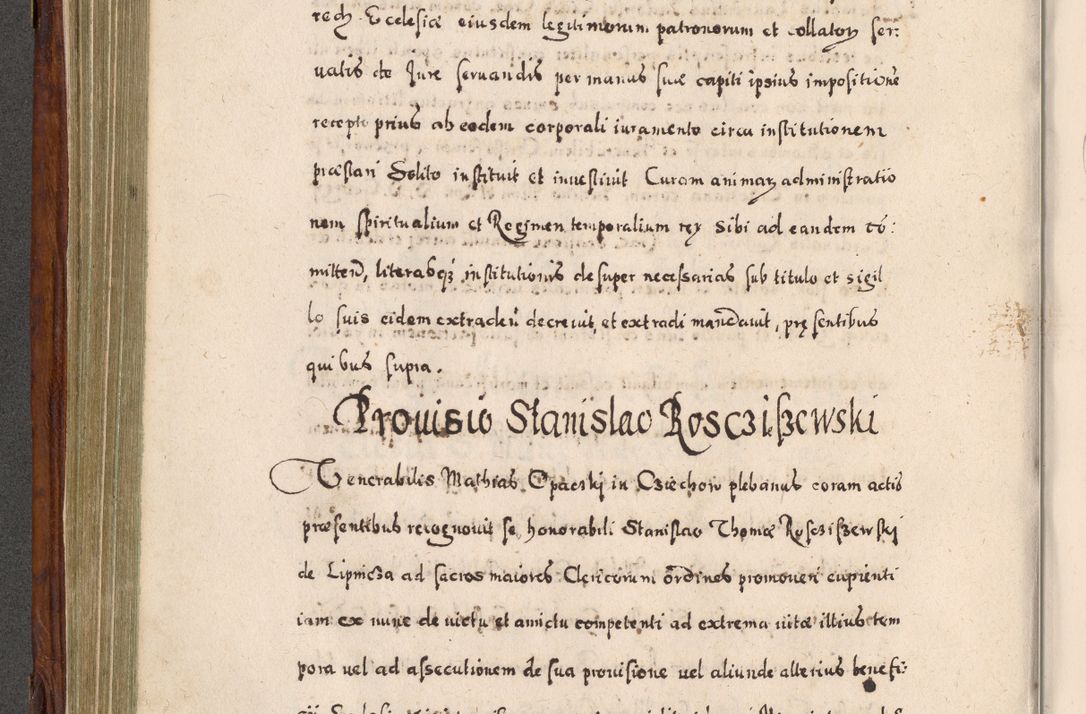 rech Ecclesiæ eiusdem legitimorum patronorum et collatorꝝ ser:
uatis de Jure seruandis per manus suæ capiti ipsius impositione
recepto prius ab eodem corporali iuramento circa institutionem
præstari Solito instituit et inuestiuit Curam animarꝝ administratio
nem spiritualium et Regimen temporalium rerꝝ sibi ad eandem cō:
mitteñ, literasqꝫ institutionis desuper necessarias sub titulo et sigil
lo suis eidem extradeñ decreuit, et extradi mandauit, pręsentibus
quibus supra.
Prouisio Stanislao Roscziszewski
Venerabilis Mathias Opaczskj in Cziechow plebanus coram actis
præsentibus recognouit se, honorabili Stanislao Thomæ Roscziszewskj
de Lipnicza ad sacros maiores Clericorum ordines promoueri cupienti
iam ex nunc de victu et amictu competenti ad extrema uitæ illius tem
pora uel ad assecutionem de sua prouisione uel aliunde alterius benefi: